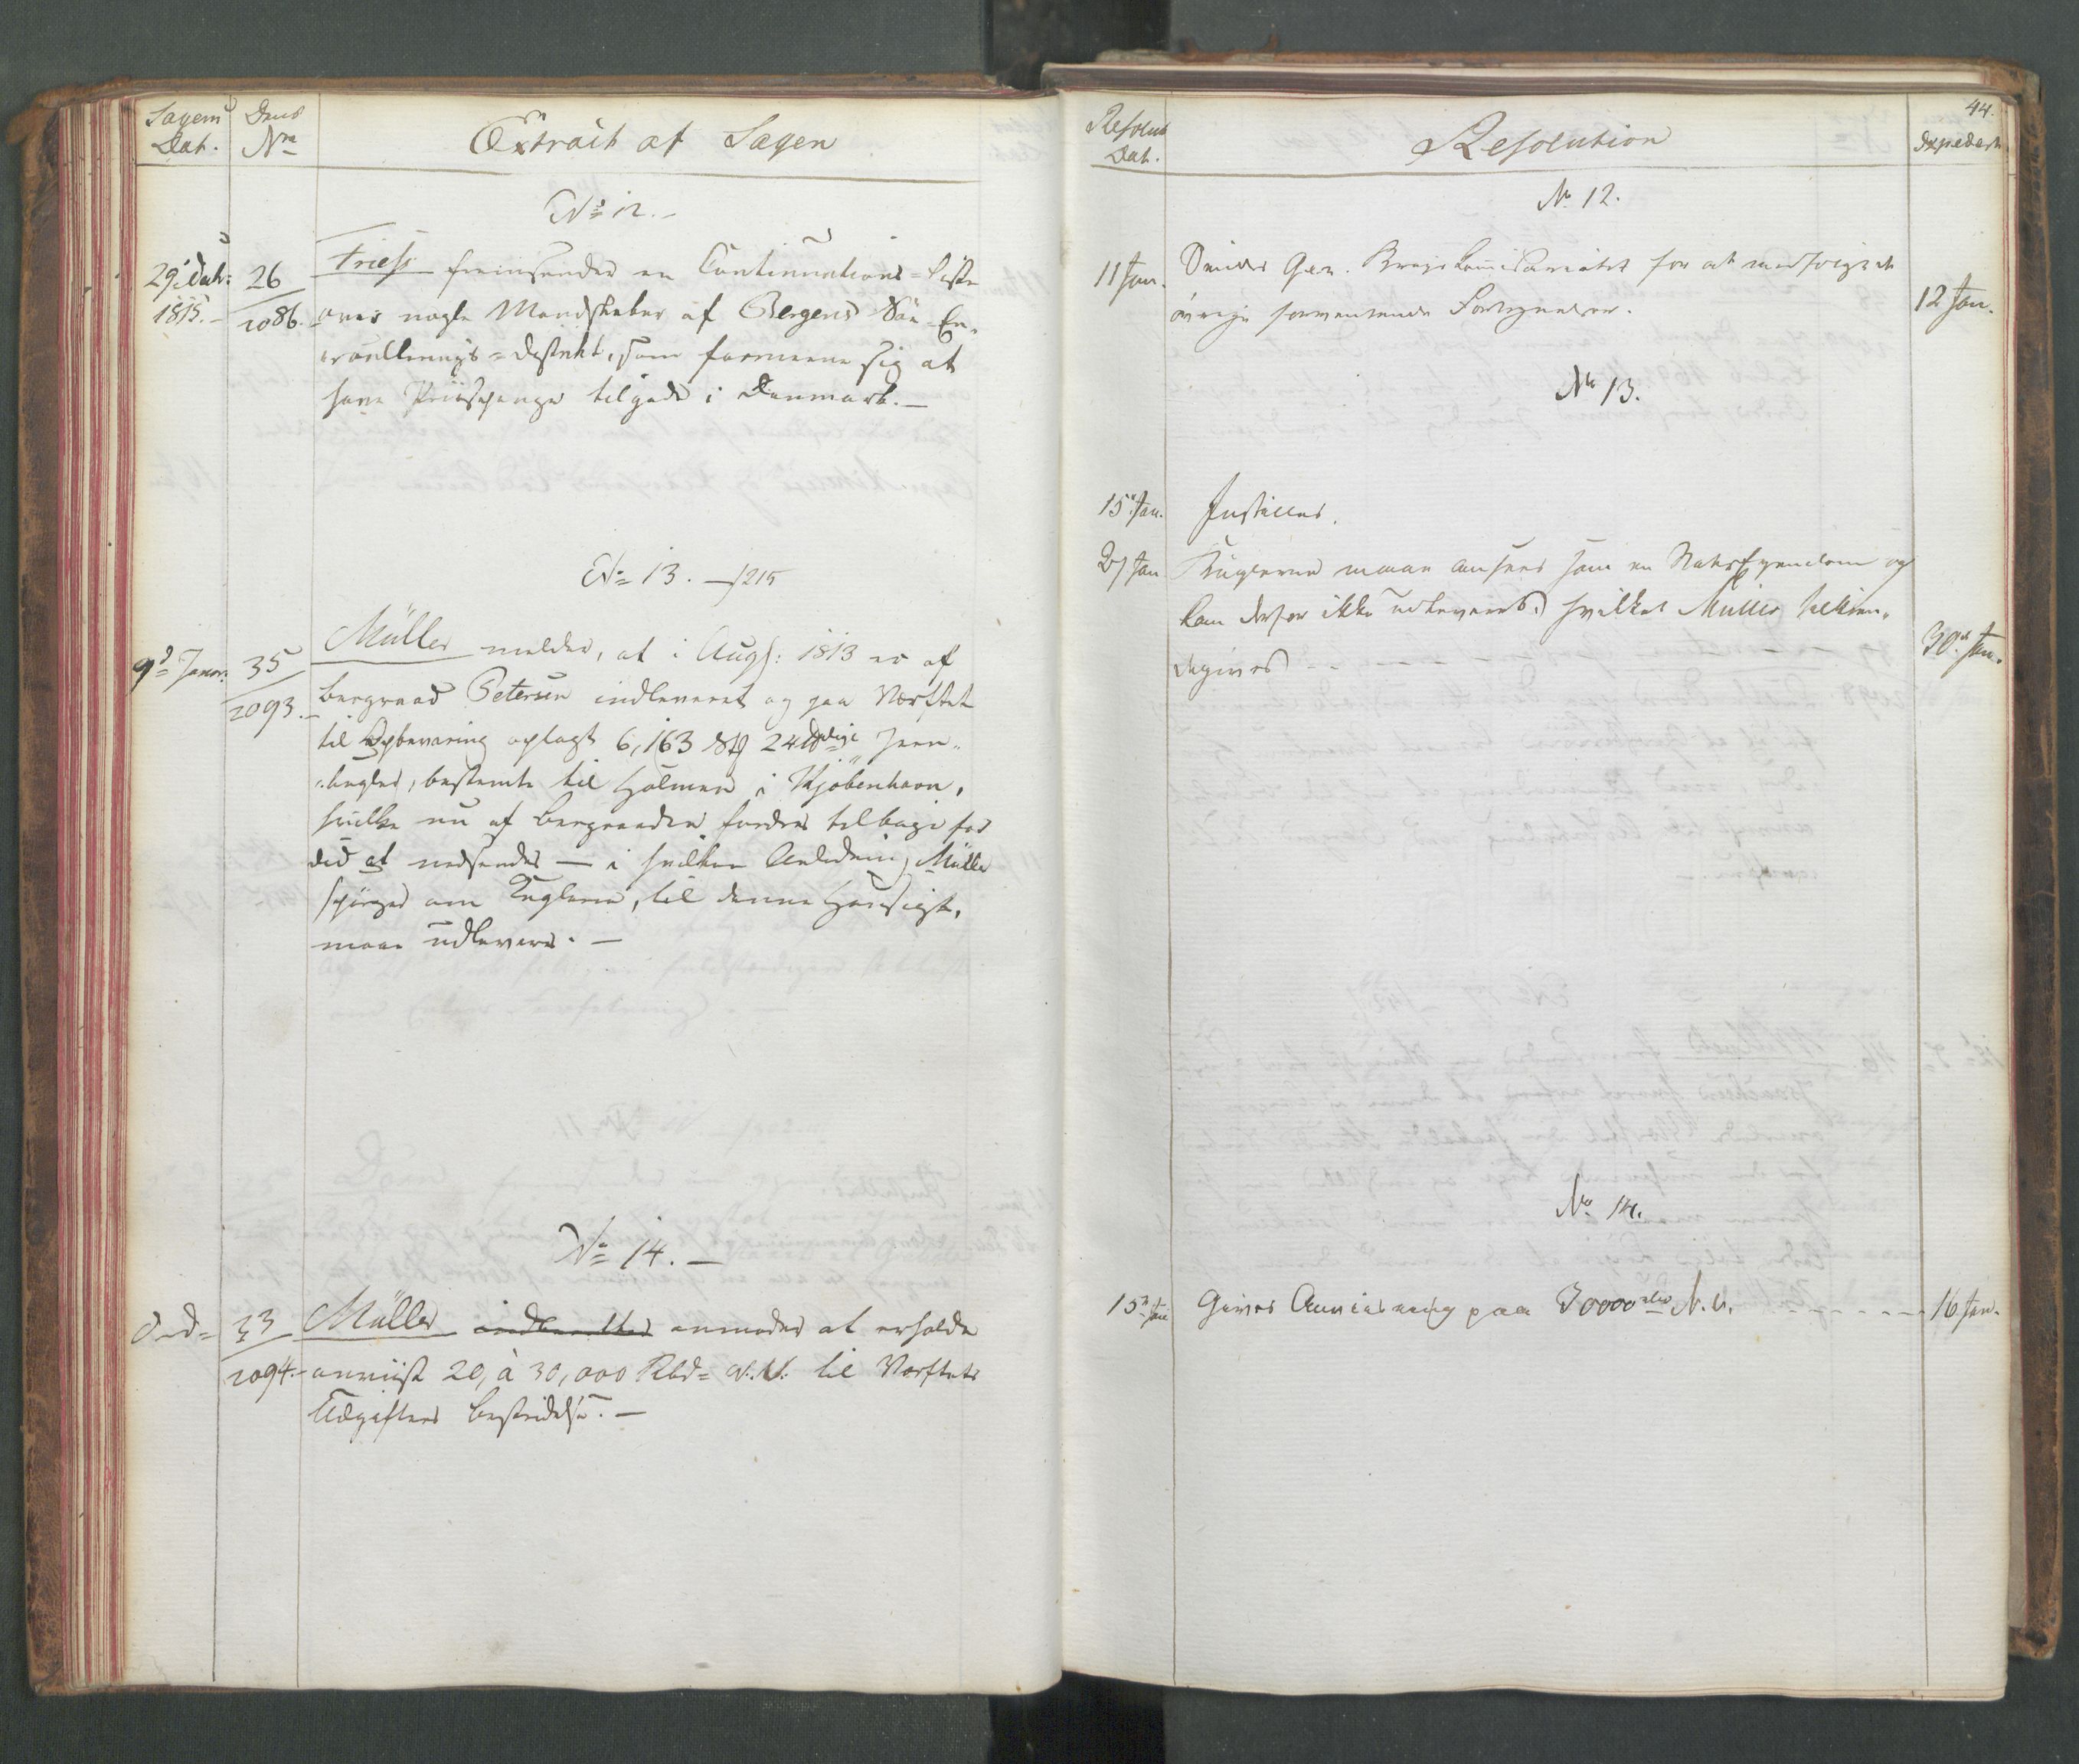 Sagens
Dat.
Dens
No
Extrait af Sagen
No 12.-
29' Decbr:
1815.-
26
2086.
Friess freinsender en Continuations-Liste
over nogle Mandskaber af Bergens Söe-En-
roullerings-District, som formeene sig at
have Priisepenge tilgode i Danmark.-
No 13. -/215
9d Januar:
35
2093.-
Müller melder, at i Augs: 1813 er af
Bergraad Petersen indleveret og paa Værftet
til Opbevaring oplagt 6,163 24 dige Jern-
kugler, bestemte til Holmen i Kjöbenhavn,
hvilke nu af Bergraaden fordres tilbage for
did at nedsendes - i hvilken Anledning Müller
spörger om Kuglerne, til denne Hensigt,
maae udleveres. -
No 14. -
d - d =
33
2094.-
Müller indberetter anmoder at erholde
anviist 20, à 30,000 Rbd= N.V: til Værftets
Udgifters Bestridelse. -
44.
Resolut
Dat.
Resolution
Expedert
No 12.
11 Jan.
Sendes Gen. Krigs Commissariatet for at medfölge de
övrige forventende Fortegnelser.
12 Jan.
No 13.
15' Jan.
Indstilles.
27 Jan
Kuglerne maae ansees som en Statseyendom og
kan derfor ikke udleveres, hvilket Müller tilkien-
degives - - - - - -
30d Jan.
No 14.
15d Jan
Gives Anviisning paa 30000 rbd N.V. - - - - - - -
16 Jan.